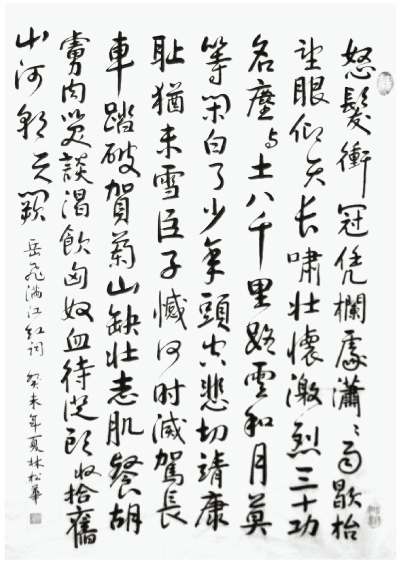 怒髮衝冠凭欄處瀟々雨歇抬
望眼仰天長嘯壯懷激烈三十功
名塵与土八千里路雲和月莫
等閑白了少年頭空悲切靖康
耻猶未雪臣子憾何時滅駕長
車踏破賀蘭山缺壯志飢餐胡
虜肉笑談渴飲匈奴血待從頭收拾舊
山河朝天闕
岳飛滿江紅詞 癸未年夏林松華